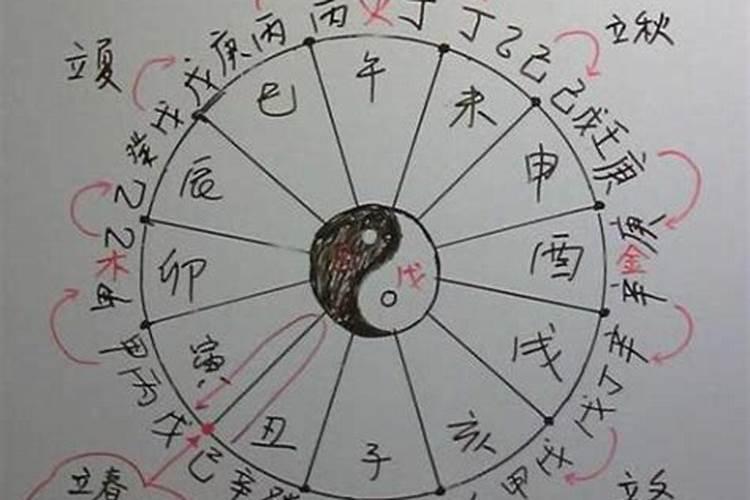 立夏
立秋
立春
戊庚丙
丙火丁
丁乙己
己戊壬庚
庚金辛
辛丁戊
戊甲
己辛癸
戊丙甲
甲木乙
乙癸戊
巳
午
未
申
酉
戌
亥
子
丑
寅
卯
辰
戊